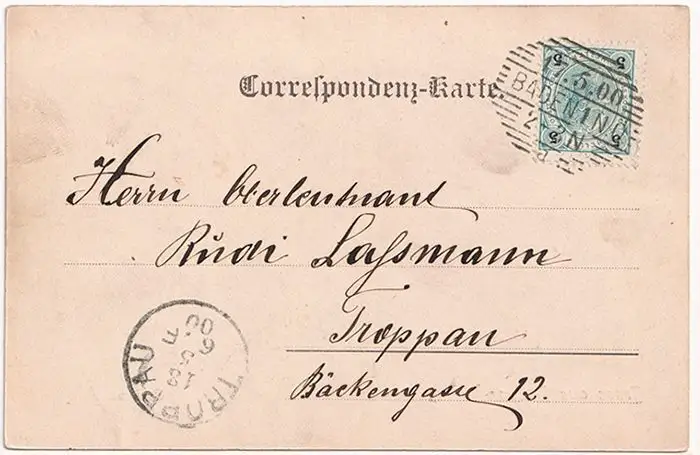 Correspondenz-Karte.
17.5.00
BADEN 1 N
2 N
5
5
5
5
Herrn Oberleutnant
Rudi Laßmann
Troppau
Bäckengasse 12.
TROPPAU
18
5
6 F
00